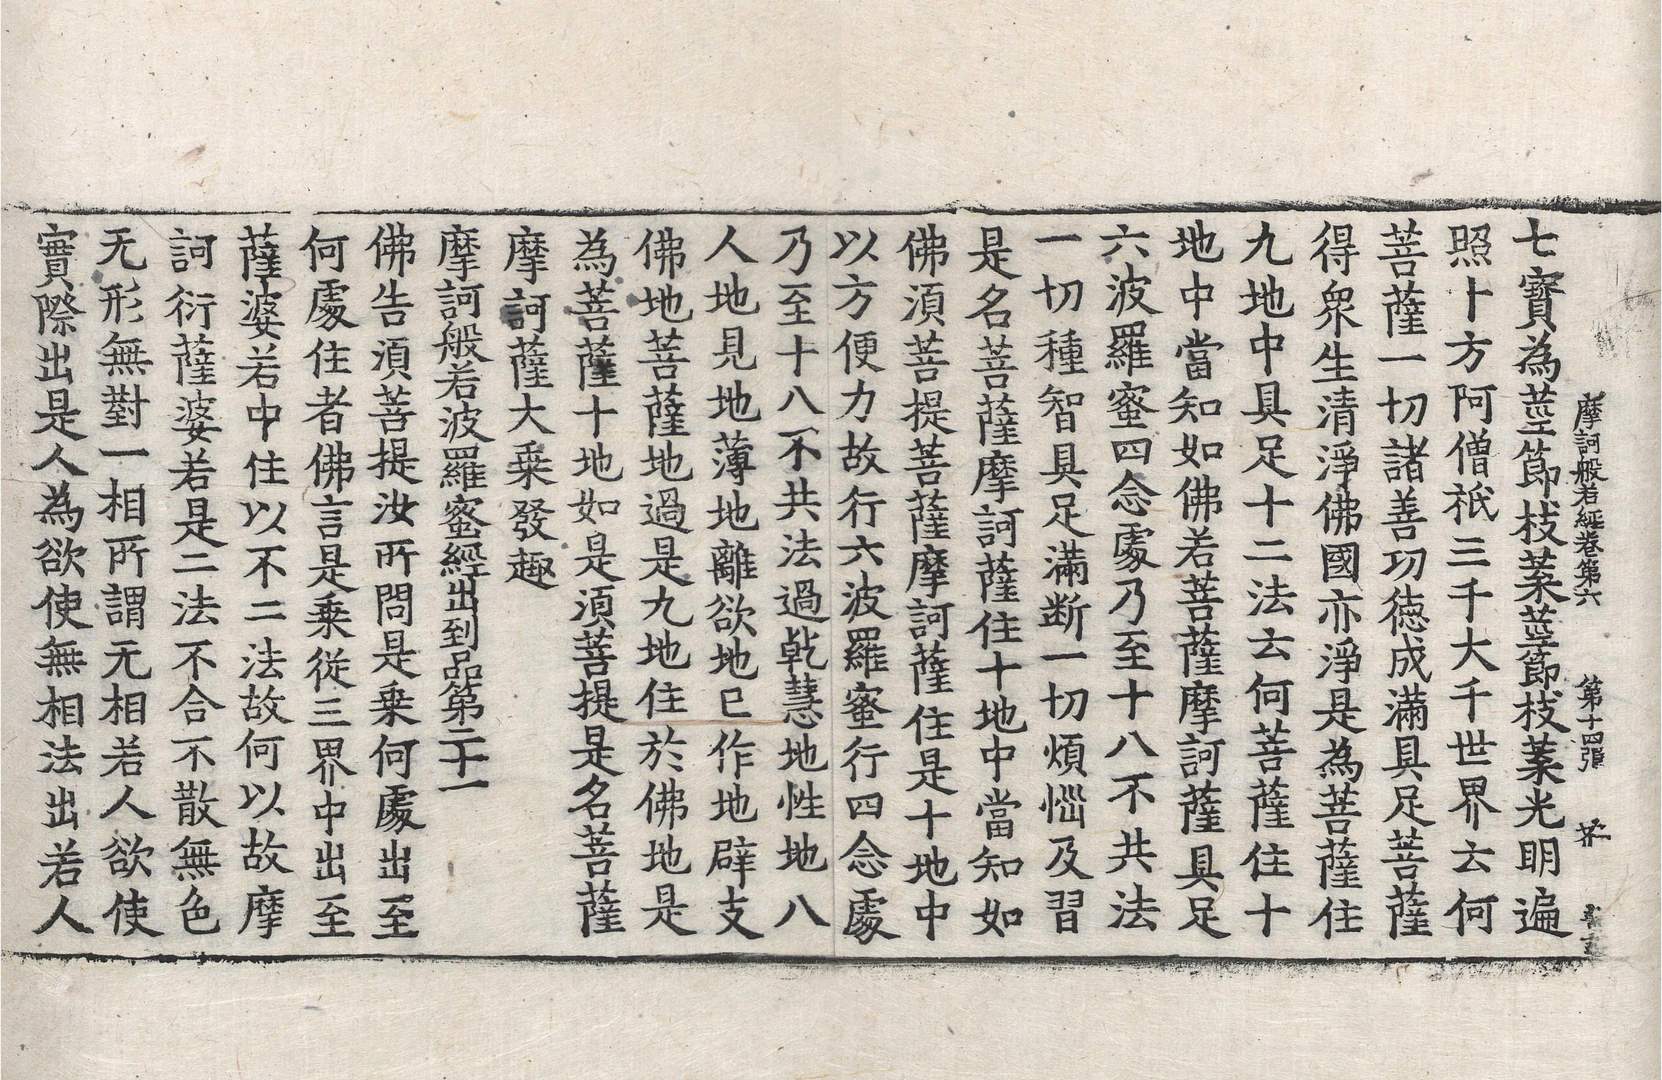 摩訶般若經卷第六 第十四張 芥
七寶為莖節枝葉莖節枝葉光明遍
照十方阿僧祇三千大千世界云何
菩薩一切諸善功徳成滿具足菩薩
得衆生清淨佛國亦淨是為菩薩住
九地中具足十二法云何菩薩住十
地中當知如佛若菩薩摩訶薩具足
六波羅蜜四念處乃至十八不共法
一切種智具足滿断一切煩惱及習
是名菩薩摩訶薩住十地中當知如
佛湏菩提菩薩摩訶薩住是十地中
以方便力故行六波羅蜜行四念處
乃至十八不共法過乾慧地性地八
人地見地薄地離欲地已作地辟支
佛地菩薩地過是九地住於佛地是
為菩薩十地如是湏菩提是名菩薩
摩訶薩大乗發趣
摩訶般若波羅蜜經出到品第二十一
佛告湏菩提汝所問是乗何處出至
何處住者佛言是乗從三界中出至
薩婆若中住以不二法故何以故摩
訶衍薩婆若是二法不合不散無色
无形無對一相所謂无相若人欲使
實際出是人為欲使無相法出若人